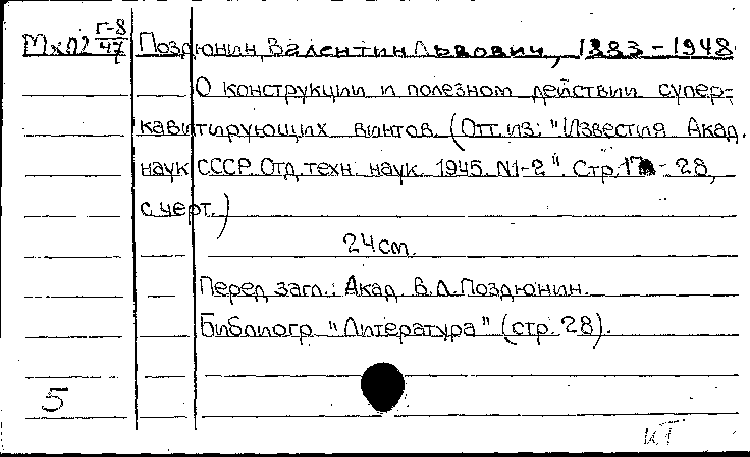 Мх02 Г-8/47 Поздюнин, Валентин Львович, 1883-1948.
О конструкции и полезном действии супер-
кавитирующих винтов. (Отт. из: "Известия Акад.
наук СССР. Отд. техн. наук. 1945. N1-2". Стр. 17-28,
с черт.)
24 см.
Перед загл.: Акад. В.Л. Поздюнин.
Библиогр. "Литература" (стр. 28).
5